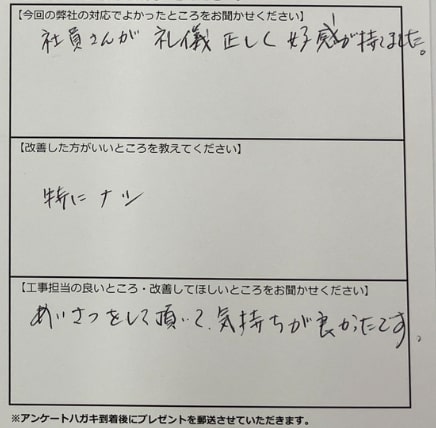 【今回の弊社の対応でよかったところをお聞かせください】
社員さんが 礼儀 正しく 好感が持てました。
【改善した方がいいところを教えてください】
特に ナシ
【工事担当の良いところ・改善してほしいところをお聞かせください】
あいさつをして頂いて、気持ちが良かったです。
※アンケートハガキ到着後にプレゼントを郵送させていただきます。